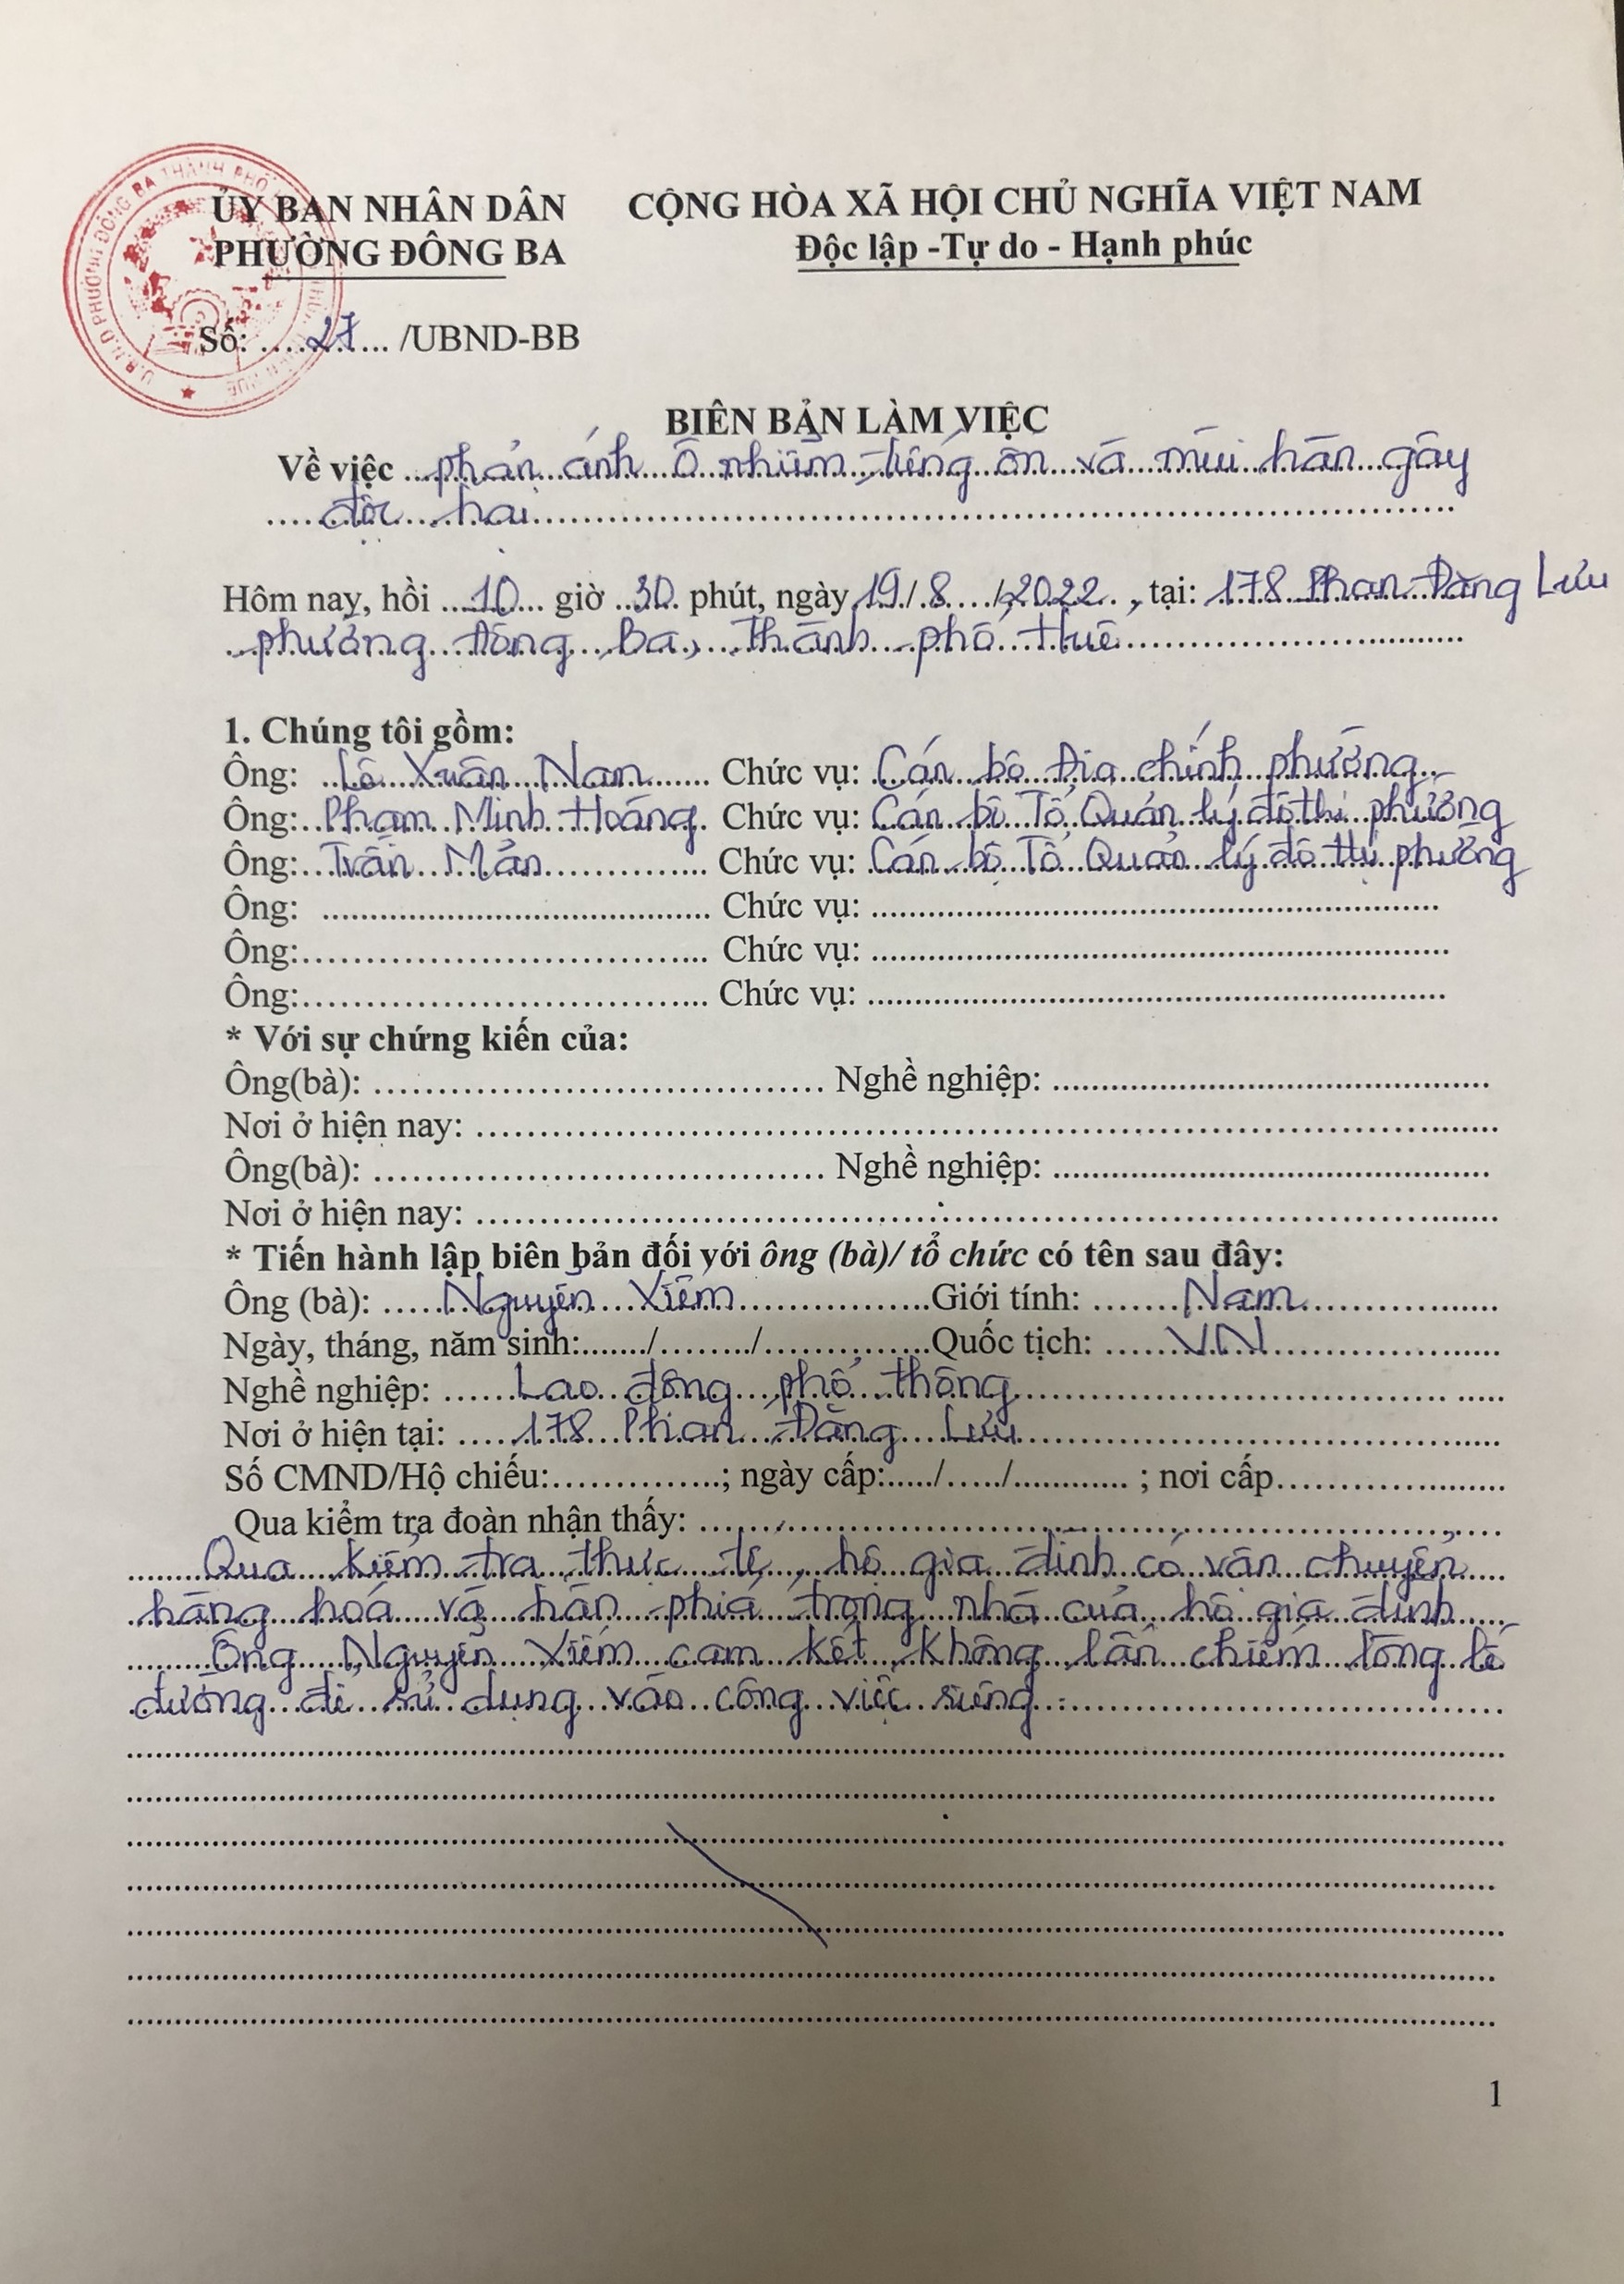 ỦY BAN NHÂN DÂN
PHƯỜNG ĐÔNG BA
CỘNG HÒA XÃ HỘI CHỦ NGHĨA VIỆT NAM
Độc lập -Tự do - Hạnh phúc
Số: ....27.... /UBND-BB
BIÊN BẢN LÀM VIỆC
Về việc phản ánh ô nhiễm tiếng ồn và mùi hàn gây
độc hại
Hôm nay, hồi 10 giờ 30 phút, ngày 19/8/2022, tại: 178 Phan Đăng Lưu
phường Đông Ba, Thành phố Huế
1. Chúng tôi gồm:
Ông: Lê Xuân Nam Chức vụ: Cán bộ Địa chính phường
Ông: Phạm Minh Hoàng Chức vụ: Cán bộ Tổ Quản lý đô thị phường
Ông: Trần Mẫn Chức vụ: Cán bộ Tổ Quản lý đô thị phường
Ông: ........ Chức vụ: ........
Ông: ........ Chức vụ: ........
Ông: ........ Chức vụ: ........
* Với sự chứng kiến của:
Ông(bà): ........ Nghề nghiệp: ........
Nơi ở hiện nay: ........
Ông(bà): ........ Nghề nghiệp: ........
Nơi ở hiện nay: ........
* Tiến hành lập biên bản đối với ông (bà)/ tổ chức có tên sau đây:
Ông (bà): Nguyễn Xiêm Giới tính: Nam
Ngày, tháng, năm sinh:......./......../........ Quốc tịch: VN
Nghề nghiệp: Lao động phổ thông
Nơi ở hiện tại: 178 Phan Đăng Lưu
Số CMND/Hộ chiếu:........; ngày cấp:...../...../........ ; nơi cấp........
Qua kiểm tra đoàn nhận thấy: ........
Qua kiểm tra thực tế, hộ gia đình có vận chuyển
hàng hoá và hàn phía trong nhà của hộ gia đình
Ông Nguyễn Xiêm cam kết không lấn chiếm lòng lề
đường để sử dụng vào công việc riêng.
1